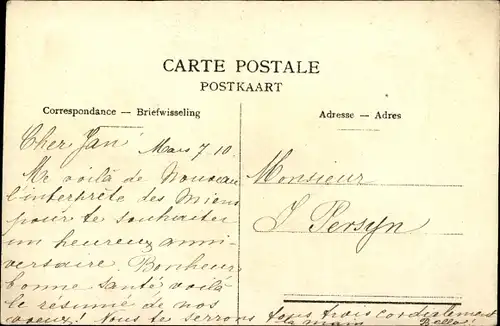 CARTE POSTALE
POSTKAART
Correspondance — Briefwisseling
Adresse — Adres
Cher Jan
Mars 7 10
Me voilà de Nouveau
l'interprète des Miens
pour te souhaiter
un heureux anni-
versaire. Bonheur
bonne santé voilà
le résumé de nos
voeux! Nous te serrons tous trois cordialement
la main
Monsieur
J Persyn